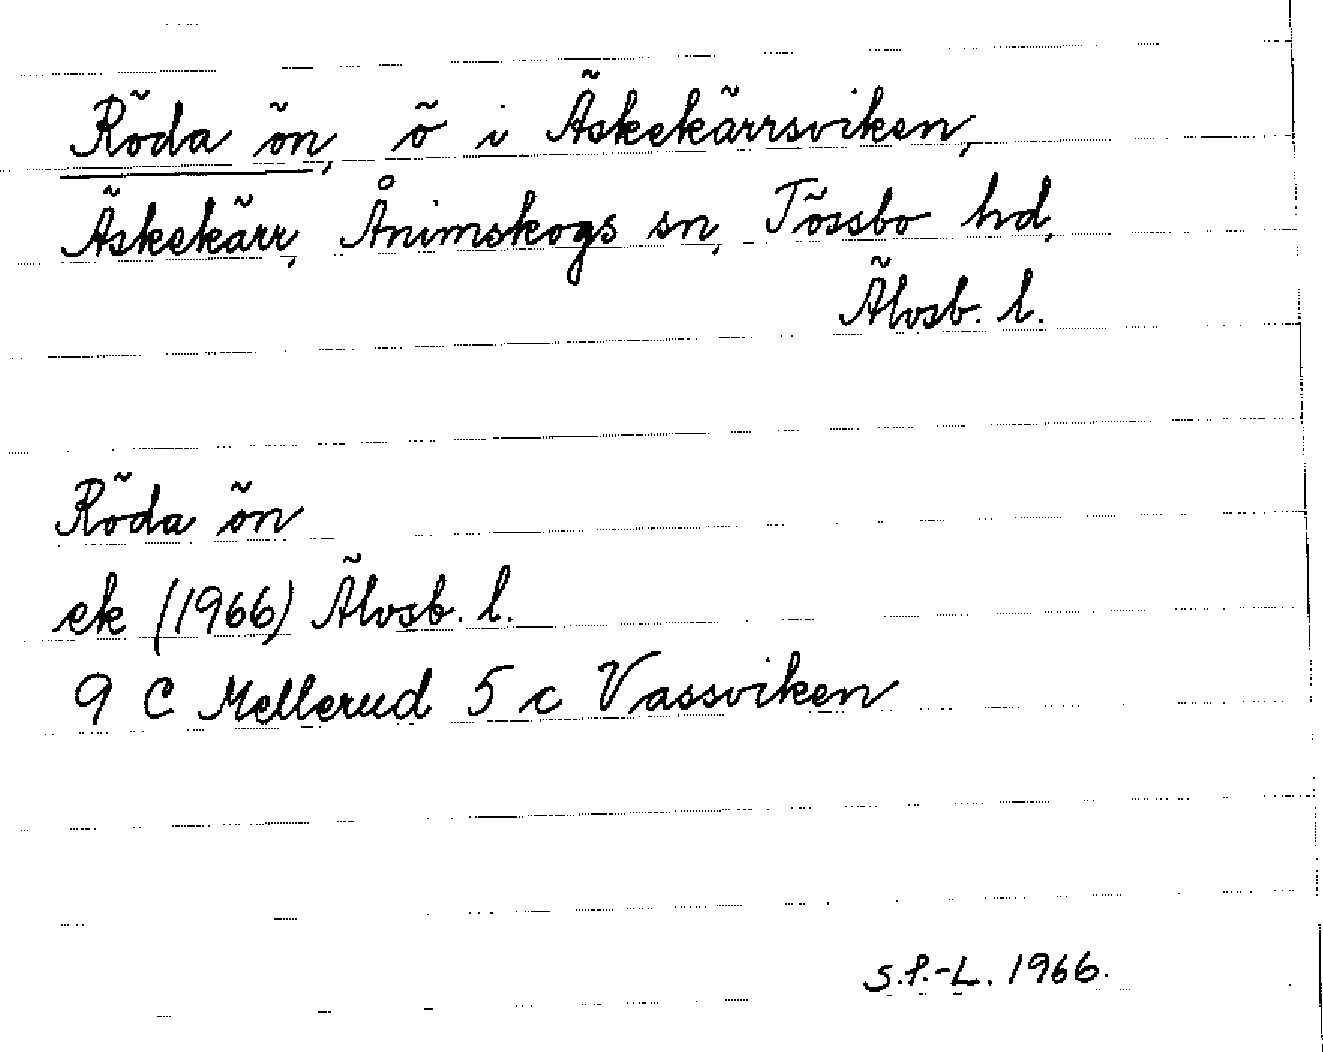 Röda ön, ö i Äskekärrsviken,
Äskekärr, Ånimskogs sn, Tössbo hd,
Älvsb. l.
Röda ön
ek (1966) Älvsb. l.
9 C Mellerud 5 c Vassviken
S.P.-L. 1966.